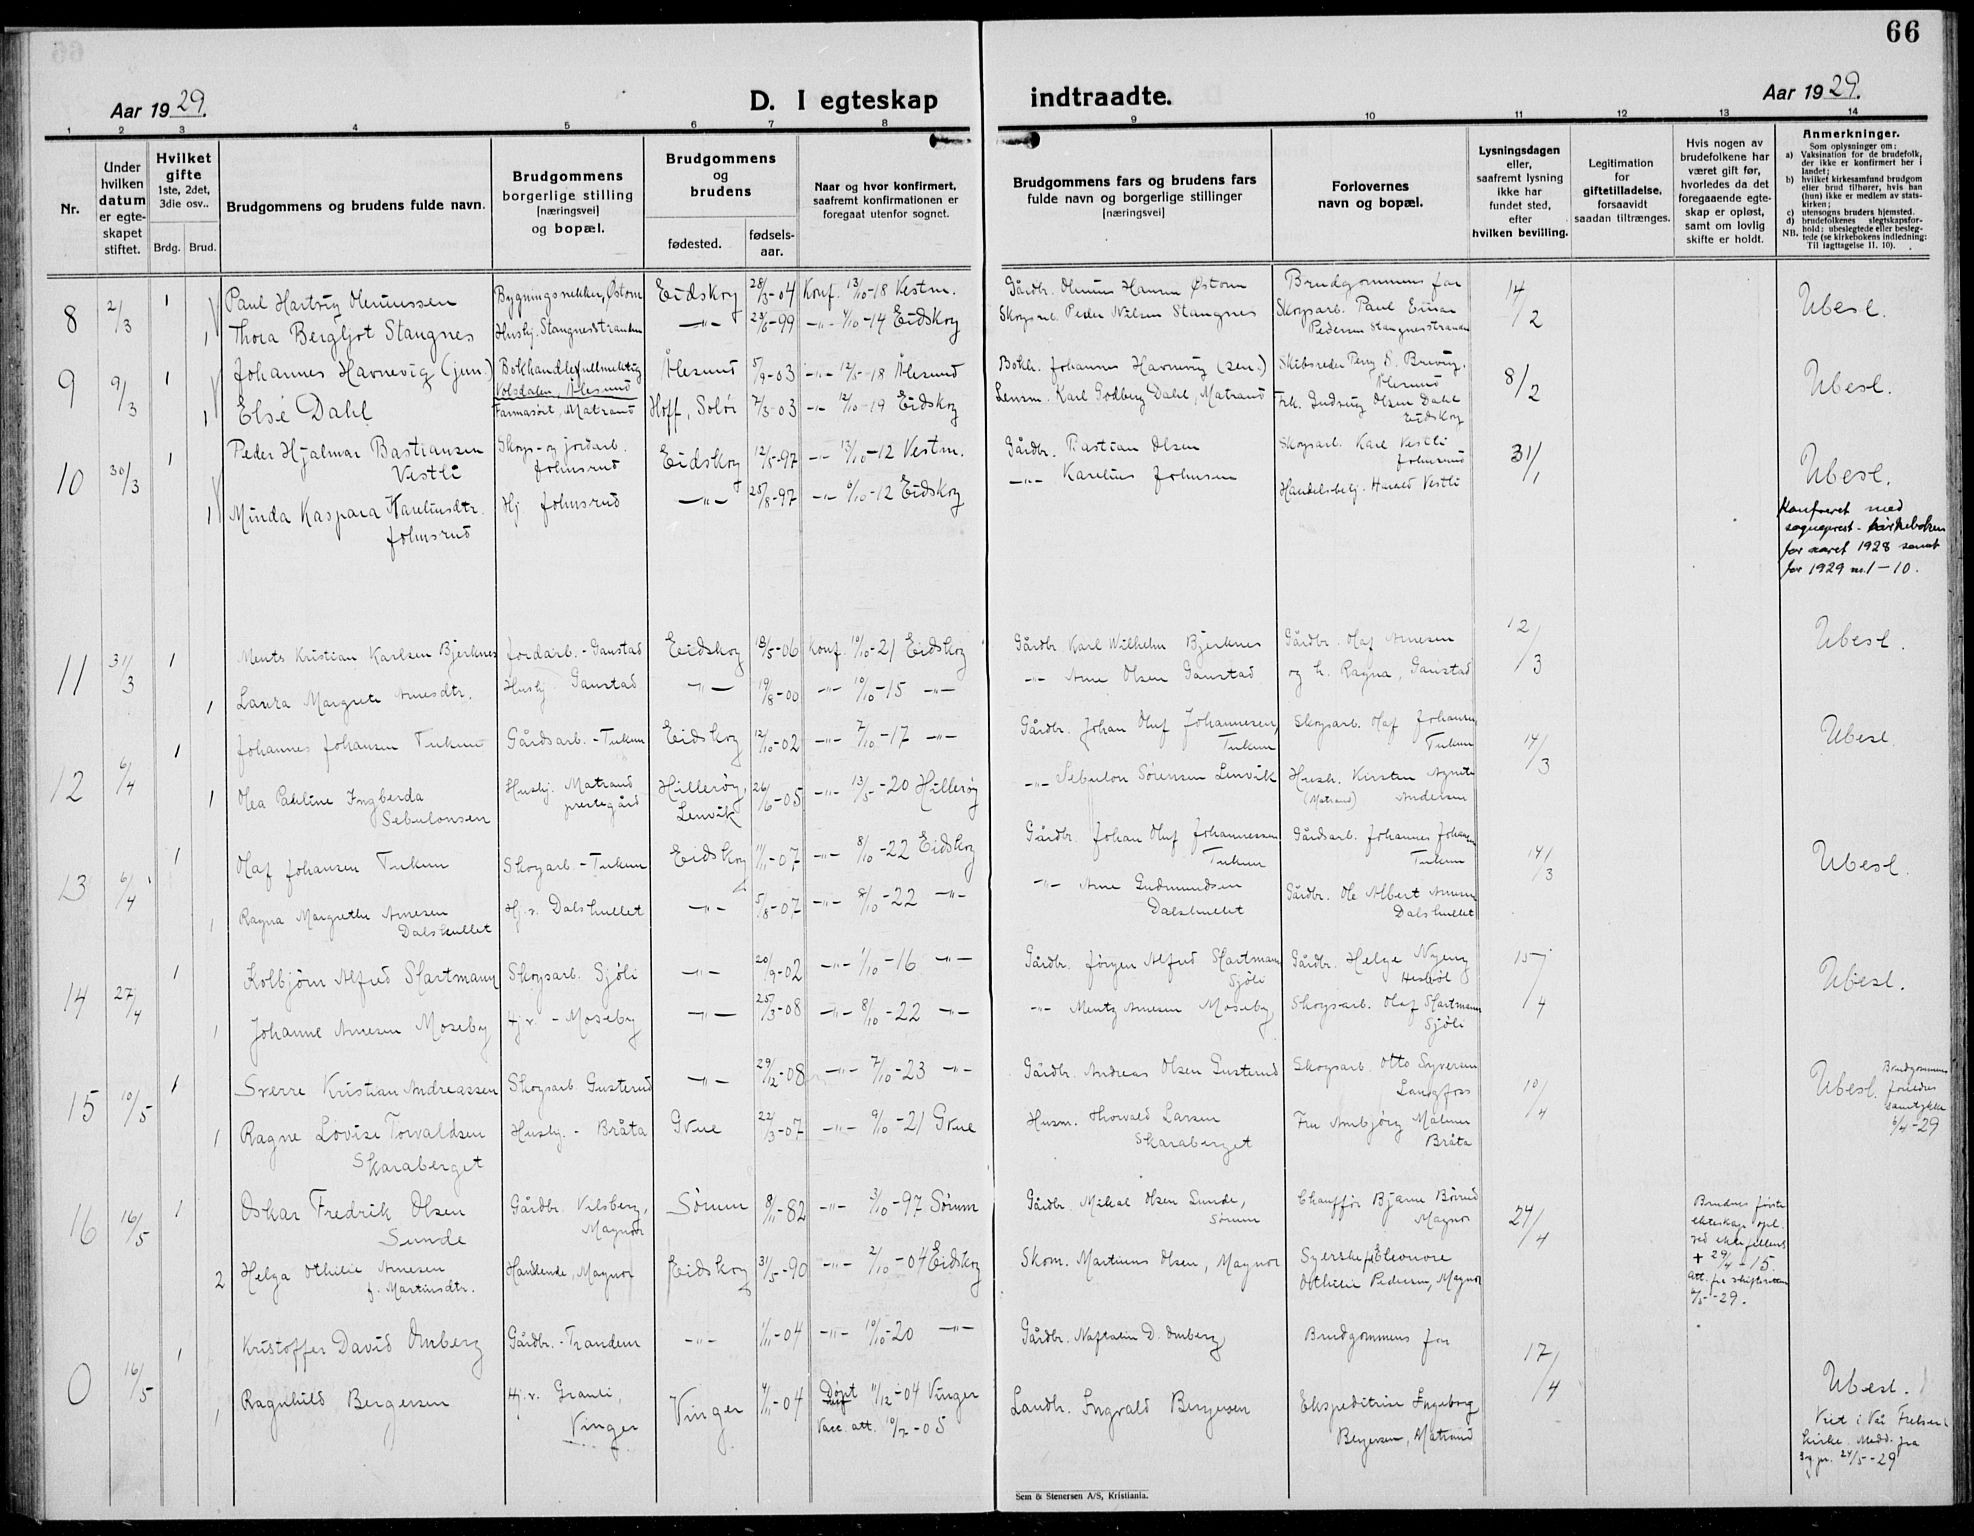 66
Aar 1929.
D. I egteskap
indtraadte.
Aar 1929.
1 2 3 4 5 6 7 8 9 10 11 12 13 14
Nr.
Under hvilken datum er egte-skapet stiftet.
Hvilket gifte
1ste, 2det, 3die osv..
Brdg. Brud.
Brudgommens og brudens fulde navn.
Brudgommens borgerlige stilling [næringsvei] og bopæl.
Brudgommens og brudens
fødested.
fødsels-aar.
Naar og hvor konfirmert, saafremt konfirmationen er foregaat utenfor sognet.
Brudgommens fars og brudens fars fulde navn og borgerlige stillinger [næringsvei]
Forlovernes navn og bopæl.
Lysningsdagen eller, saafremt lysning ikke har fundet sted, efter hvilken bevilling.
Legitimation for giftetilladelse, forsaavidt saadan tiltrænges.
Hvis nogen av brudefolkene har været gift før, hvorledes da det foregaaende egte-skap er opløst, samt om lovlig skifte er holdt.
Anmerkninger.
Som oplysninger om:
a) Vaksination for de brudefolk, der ikke er konfirmert her i landet;
b) hvilket kirkesamfund brudgom eller brud tilhører, hvis han (hun) ikke er medlem av stats-kirken;
c) utensogns bruders hjemsted.
d) brudefolkenes slegtskapsfor-hold: ubeslegtede eller besleg-tede (se kirkebokens indledning: Til iagttagelse II. 10).
NB.
8 2/3 1 Paul Hartvig Olmussen Bygningssnekker, Østom Eidskog 28/3-04 Konf. 13/10-18 Vestm. Gårdbr. Olmus Hansen Østom Brudgommens far 14/2 Ubesl.
1 Thora Bergljot Stangnes Hushj. Stangnesstranden -"- -99 -"- -14 Eidskog Skogsarb. Peder Nilsen Stangnes Skogsarb. Paul Einar
Pedersen Stangnesstranden
9 9/3 1 Johannes Havnevig (jun.) Bokhandlerfullmektig Ålesund 5/9-03 -"- 12/5-18 Ålesund Bokh. Johannes Havnevig (sen.) Skibsreder Perry S. Brevig, 8/2 Ubesl.
Volsdalen, Ålesund Ålesund
1 Else Dahl Farmasøit, Matrand Hoff, Solør 7/3-03 -"- 12/10-19 Eidskog Lensm. Karl Godberg Dahl, Matrand Frk. Olsen Dahl
Eidskog
10 30/3 1 Peder Hjalmar Bastiansen Skogs- og jordarb. Eidskog 12/5-97 -"- 13/10-12 Vestm. Gårdbr. Bastian Olsen Skogsarb. Karl Vestli 31/1 Ubesl.
Vestli Johnsrud Johnsrud
1 Minda Kaspara Karelinsdtr. Hj. Johnsrud -"- 25/8-97 -"- 6/10-12 Eidskog -"- Karelius Johnsen Handelsbetj. Harald Vestli
Johnsrud
Konfreret med
sogneprest-kirkeboken
for aaret 1928 samt
for 1929 nr. 1-10.
11 31/3 1 Ments Kristian Karlsen Bjerknes Jordarb. - Ganstad Eidskog 18/5-06 Konf. 10/10-21 Eidskog Gårdbr. Karl Wilhelm Bjerknes Gårdbr. Olaf Arnesen 12/3 Ubesl.
1 Laura Margrete Arnesdtr. Hushj. Ganstad -"- 19/8-00 -"- 10/10-15 -"- -"- Arne Olsen Ganstad og h. Ragna, Ganstad
12 6/4 1 Johannes Johansen Tukun Gårdsarb. - Tukun Eidskog 12/10-02 -"- 7/10-17 -"- Gårdbr. Johan Oluf Johannesen, Skogsarb. Olaf Johansen 14/3 Ubesl.
Tukun Tukun
1 Olea Pauline Ingberda Hushj. Matrand Hillerøy, 26/6-05 -"- 13/5-20 Hillerøy -"- Sebulon Sørensen Lenvik Hush. Kirsten Agnete
Sebulonsen prestegård Lenvik (Matrand) Andersen
13 6/4 1 Olaf Johansen Tukun Skogarb. - Tukun Eidskog 11/11-07 -"- 8/10-22 Eidskog Gårdbr. Johan Oluf Johannessen Gårdsarb. Johannes Johansen 14/3 Ubesl.
Tukun Tukun
1 Ragna Margrethe Arnesen Hj. v. Dalshullet -"- 5/8-07 -"- 8/10-22 -"- -"- Arne Gudmundsen Gårdbr. Ole Albert Arnesen
Dalshullet Dalshullet Dalshullet
14 27/4 1 Kolbjørn Alfred Hartmann Skogsarb. Sjøli -"- 20/9-02 -"- 1/10-16 -"- Gårdbr. Jørgen Alfred Hartmann Gårdbr. Helge Nyeng 15/4 Ubesl.
Sjøli
1 Johanne Arnesen Moseby Hj. v. - Moseby -"- 25/3-08 -"- 8/10-22 -"- -"- Mentz Arnesen Moseby Skogsarb. Olaf Hartmann
Sjøli
15 10/5 1 Sverre Kristian Andreassen Skogsarb. Gusterud -"- 29/12-08 -"- 7/10-23 -"- Gårdbr. Andreas Olsen Gusterud Skogsarb. Otto Syversen 10/4 Ubesl.
Langfoss
1 Ragne Lovise Torvaldsen Hushj. - Bråta Grue 22/3-07 -"- 9/10-21 Grue Husm. Thorvald Larsen Fru Annbjørg Malmer
Skaraberget Skaraberget Bråta
Brudgommens
foreldres
samtykke
6/4-29
16 16/5 1 Oskar Fredrik Olsen Gårdbr. Kilsberg, Sørum 8/11-82 -"- 3/10-97 Sørum Gårdbr. Mikal Olsen Sunde, Chauffør Bjarne Børrud 24/4
Sunde Magnor Sørum Magnor
2 Helga Othilie Arnesen Handlende, Magnor Eidskog 31/5-90 -"- 2/10-04 Eidskog Skom. Martinus Olsen, Magnor Syerske Eleonore
f. Martinsdtr. Othilie Pedersen, Magnor
Brudens første
ekteskap opl.
ved ektefellens
+ 29/4-15.
Att. fra skifteretten
-29.
0 16/5 1 Kristoffer David Omberg Gårdbr. - Trandem -"- 1/11-04 -"- 10/10-20 -"- Gårdbr. Naftalin D. Omberg Brudgommens far 17/4
1 Ragnhild Bergersen Hj. v. Granli, Vinger -04 Døpt 11/12-04 Vinger Landh. Ingvald Bergersen Ekspeditrise Ingeborg Ubesl.
Vinger Vacc. att. -05 Bergersen, Matrand
Viet i Vår Frelsers
kirke. Medd. fra
Sg.pr. 24/5-29
Sem & Stenersen A/S, Kristiania.